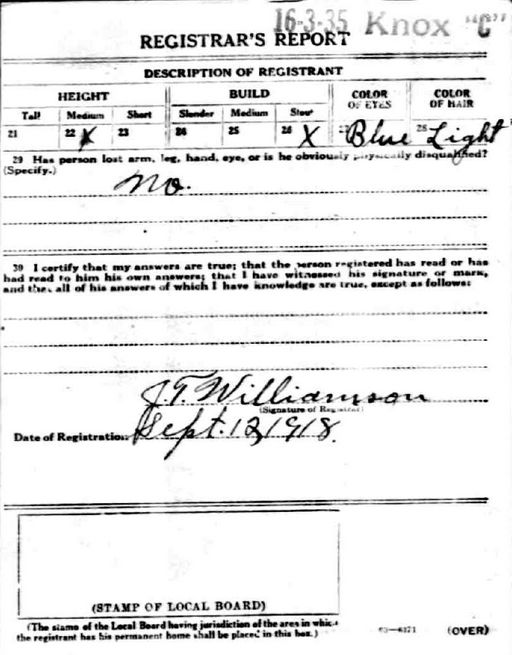 16-3-35 Knox "C"
REGISTRAR'S REPORT
DESCRIPTION OF REGISTRANT
HEIGHT BUILD COLOR OF EYES COLOR OF HAIR
Tall Medium Short Slender Medium Stout
21 22 X 23 24 25 26 X 27 Blue 28 Light
29 Has person lost arm, leg, hand, eye, or is he obviously physically disqualified?
(Specify.) No.
30 I certify that my answers are true; that the person registered has read or has
had read to him his own answers; that I have witnessed his signature or mark,
and that all of his answers of which I have knowledge are true, except as follows:
J.T. Williamson
(Signature of Registrar)
Date of Registration Sept. 12, 1918.
(STAMP OF LOCAL BOARD)
(The stamp of the Local Board having jurisdiction of the area in which
the registrant has his permanent home shall be placed in this box.)
03—6171 (OVER)